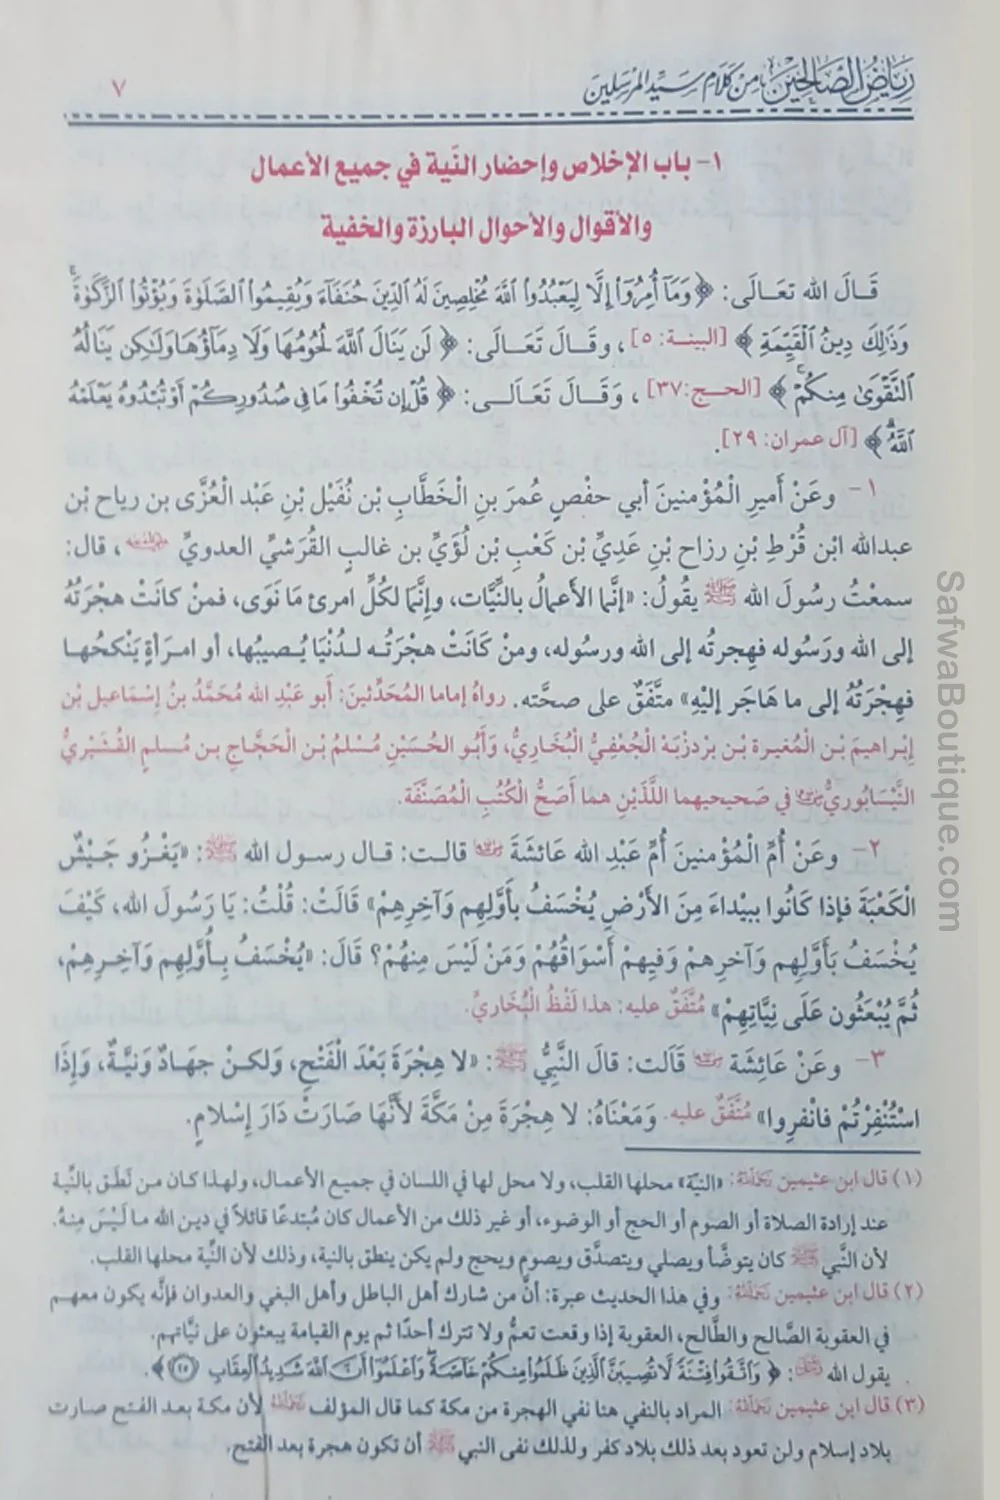 رِيَاضُ الصَّالِحِيْنَ مِنْ كَلَامِ سَيِّدِ المُرْسَلِينَ
٧
١- باب الإخلاص وإحضار النّية في جميع الأعمال
والأقوال والأحوال البارزة والخفية
قَـالَ الله تعَـالَى: ﴿وَمَآ أُمِرُوٓا۟ إِلَّا لِيَعْبُدُوا۟ ٱللَّهَ مُخْلِصِينَ لَهُ ٱلدِّينَ حُنَفَآءَ وَيُقِيمُوا۟ ٱلصَّلَوٰةَ وَيُؤْتُوا۟ ٱلزَّكَوٰةَۚ
وَذَٰلِكَ دِينُ ٱلْقَيِّمَةِ﴾ [البينـة: ٥]، وقَــالَ تَعَــالَى: ﴿لَن يَنَالَ ٱللَّهَ لُحُومُهَا وَلَا دِمَآؤُهَا وَلَٰكِن يَنَالُهُ
ٱلتَّقْوَىٰ مِنكُمْۚ﴾ [الحـج:٣٧]، وَقَــالَ تَعَـالَــى: ﴿قُلْ إِن تُخْفُوا۟ مَا فِى صُدُورِكُمْ أَوْ تُبْدُوهُ يَعْلَمْهُ
ٱللَّهُۗ﴾ [آل عمران: ٢٩].
١- وعَنْ أَميرِ الْمُؤْمنينَ أبي حفْصٍ عُمرَ بنِ الْخَطَّابِ بْن نُفَيْل بْنِ عَبْد الْعُزَّى بن رياح بْن
عبدالله ابْن قُرْطِ بْنِ رزاح بْنِ عَدِيِّ بْن كَعْبِ بْن لُؤَيِّ بن غالبٍ القُرَشيِّ العدويِّ رضي الله عنه، قال:
سمعْتُ رسُولَ الله ﷺ يقُولُ: «إنَّما الأَعمالُ بالنِّيَّات، وإِنَّمَا لكُلِّ امرئٍ مَا نَوَى، فمنْ كانَتْ هجْرَتُهُ
إلى الله ورَسُوله فهِجرتُه إلى الله ورسُوله، ومنْ كَانَتْ هجْرَتُـه لـدُنْيَا يُـصيبُها، أو امـرَأةٍ يَنْكحُهـا
فهِجْرَتُهُ إلى ما هَاجَر إليْهِ» متَّفَقٌ على صحَّته. رواهُ إماما المُحَدِّثينَ: أَبو عَبْدِ الله مُحَمَّدُ بنُ إسْمَاعيل بْن
إبْراهيمَ بْـن الْمُغيـرة بْـن بَرْدزبَـة الْجُعْفِيُّ الْبُخَـارِيُّ، وَأَبُـو الحُسَيْن مُسْلمُ بْـن الْحَجَّاجِ بـن مُـسلمٍ القُشَيْريُّ
النَّيْسَابُوريُّ رضي الله عنهما في صَحيحيهما اللَّذَيْنِ هما أَصَحُّ الْكُتُبِ الْمُصَنَّفَة.
٢- وعَنْ أُمِّ الْمُؤْمنينَ أُمِّ عَبْدِ الله عَائشَةَ رضي الله عنها قالـت: قـال رسـول الله ﷺ: «يَغْـزُو جَـيْـشٌ
الْكَعْبَةَ فإذا كَانُوا ببيْداءَ مِنَ الأَرْضِ يُخْسَفُ بأَوَّلِهم وَآخِرِهِمْ» قَالَتْ: قُلْتُ: يَا رَسُولَ الله، كَيْفَ
يُخْسَفُ بأَوَّلِهم وَآخرِهمْ وَفِيهمْ أَسْوَاقُهُمْ وَمَنْ لَيْسَ مِنهُمْ؟ قَالَ: «يُخْسَفُ بـأَوَّلِهم وَآخِـرِهِـمْ،
ثُمَّ يُبْعَثُون عَلَى نِيَّاتِهِمْ» مُتَّفَقٌ عليه: هذا لَفْظُ الْبُخَاريِّ.
٣- وعَنْ عَائِشَة رضي الله عنها قَالَت: قالَ النَّبِيُّ ﷺ: «لا هِجْرَةَ بَعْدَ الْفَتْحِ، وَلكـنْ جِهَـادٌ وَنيَّـةٌ، وَإذَا
اسْتُنْفِرْتُمْ فانْفرُوا» مُتَّفَقٌ عليه. وَمَعْنَاهُ: لا هِجْرَةَ مِنْ مَكَّةَ لأَنَّهَا صَارَتْ دَارَ إسْلامٍ.
(١) قال ابن عثيمين رحمه الله: «النيّة» محلها القلب، ولا محل لها في اللسان في جميع الأعمال، ولهذا كـان مـن نَطَـق بالنيَّة
عند إرادة الصلاة أو الصوم أو الحج أو الوضوء، أو غير ذلك من الأعمال كان مُبتدعًا قائلاً في ديـن الله مـا لَيْـسَ مِنهُ.
لأن النَّبي ﷺ كان يتوضَّأ ويصلي ويتصدَّق ويصوم ويحج ولم يكن ينطق بالنية، وذلك لأن النِّية محلها القلب.
(٢) قال ابن عثيمين رحمه الله: وفي هذا الحديث عبرة: أنَّ من شارك أهل الباطل وأهل البغي والعدوان فإنَّه يكون معهـم
في العقوبة الصَّالح والطَّالح، العقوبة إذا وقعت تعمُّ ولا تترك أحدًا ثم يوم القيامة يبعثون على نيَّاتهم.
يقول الله عز وجل: ﴿وَٱتَّقُوا۟ فِتْنَةً لَّا تُصِيبَنَّ ٱلَّذِينَ ظَلَمُوا۟ مِنكُمْ خَآصَّةًۖ وَٱعْلَمُوٓا۟ أَنَّ ٱللَّهَ شَدِيدُ ٱلْعِقَابِ ۝٢٥﴾.
(٣) قال ابن عثيمين رحمه الله: المراد بالنفي هنا نفي الهجرة من مكة كما قال المؤلف رحمه الله لأن مكـة بعـد الفـتـح صـارت
بلاد إسلام ولن تعود بعد ذلك بلاد كفر ولذلك نفى النبي ﷺ أن تكون هجرة بعد الفتح.
SafwaBoutique.com